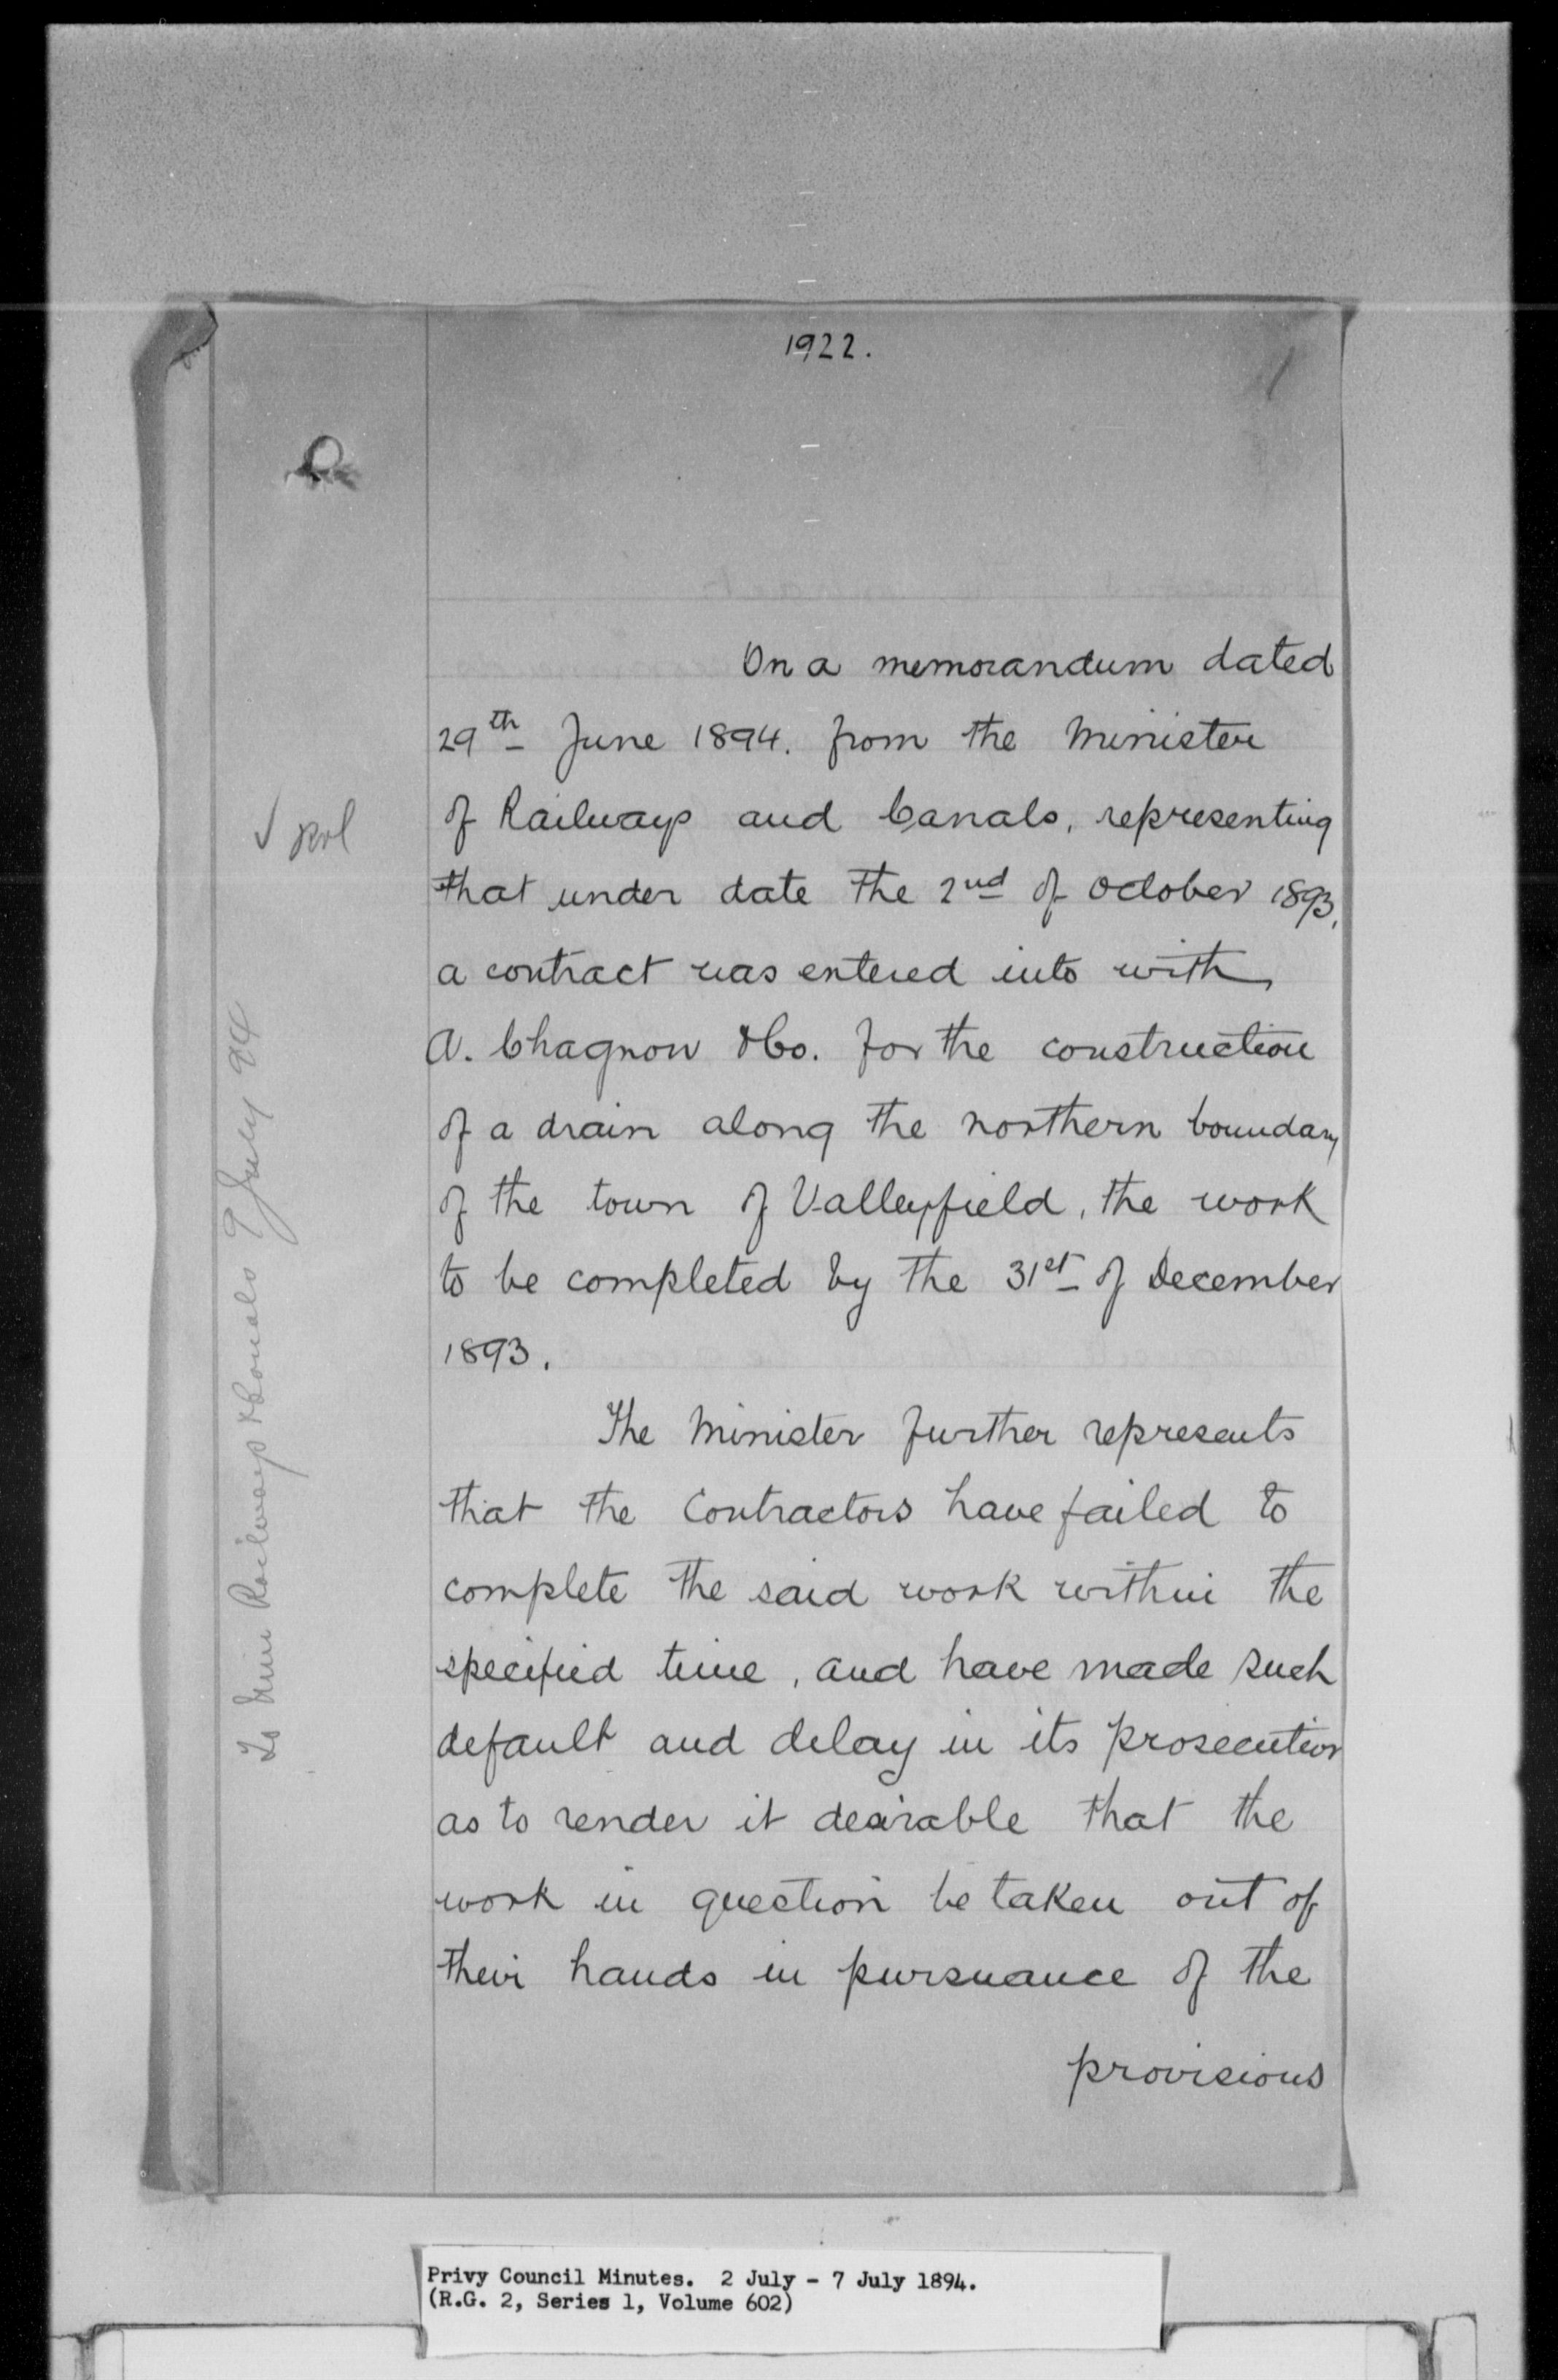 1922.
On a memorandum dated
29th June 1894. from the Minister
of Railways and Canals, representing
that under date the 2nd of October 1893,
a contract was entered into with
A. Chagnon & Co. for the construction
of a drain along the northern boundary
of the town of Valleyfield, the work
to be completed by the 31st of December
1893.
The Minister further represents
that the Contractors have failed to
complete the said work within the
specified time, and have made such
default and delay in its prosecution
as to render it desirable that the
work in question be taken out of
their hands in pursuance of the
provisions
To Min Railways & Canals 9 July 94
Privy Council Minutes. 2 July - 7 July 1894.
(R.G. 2, Series 1, Volume 602)